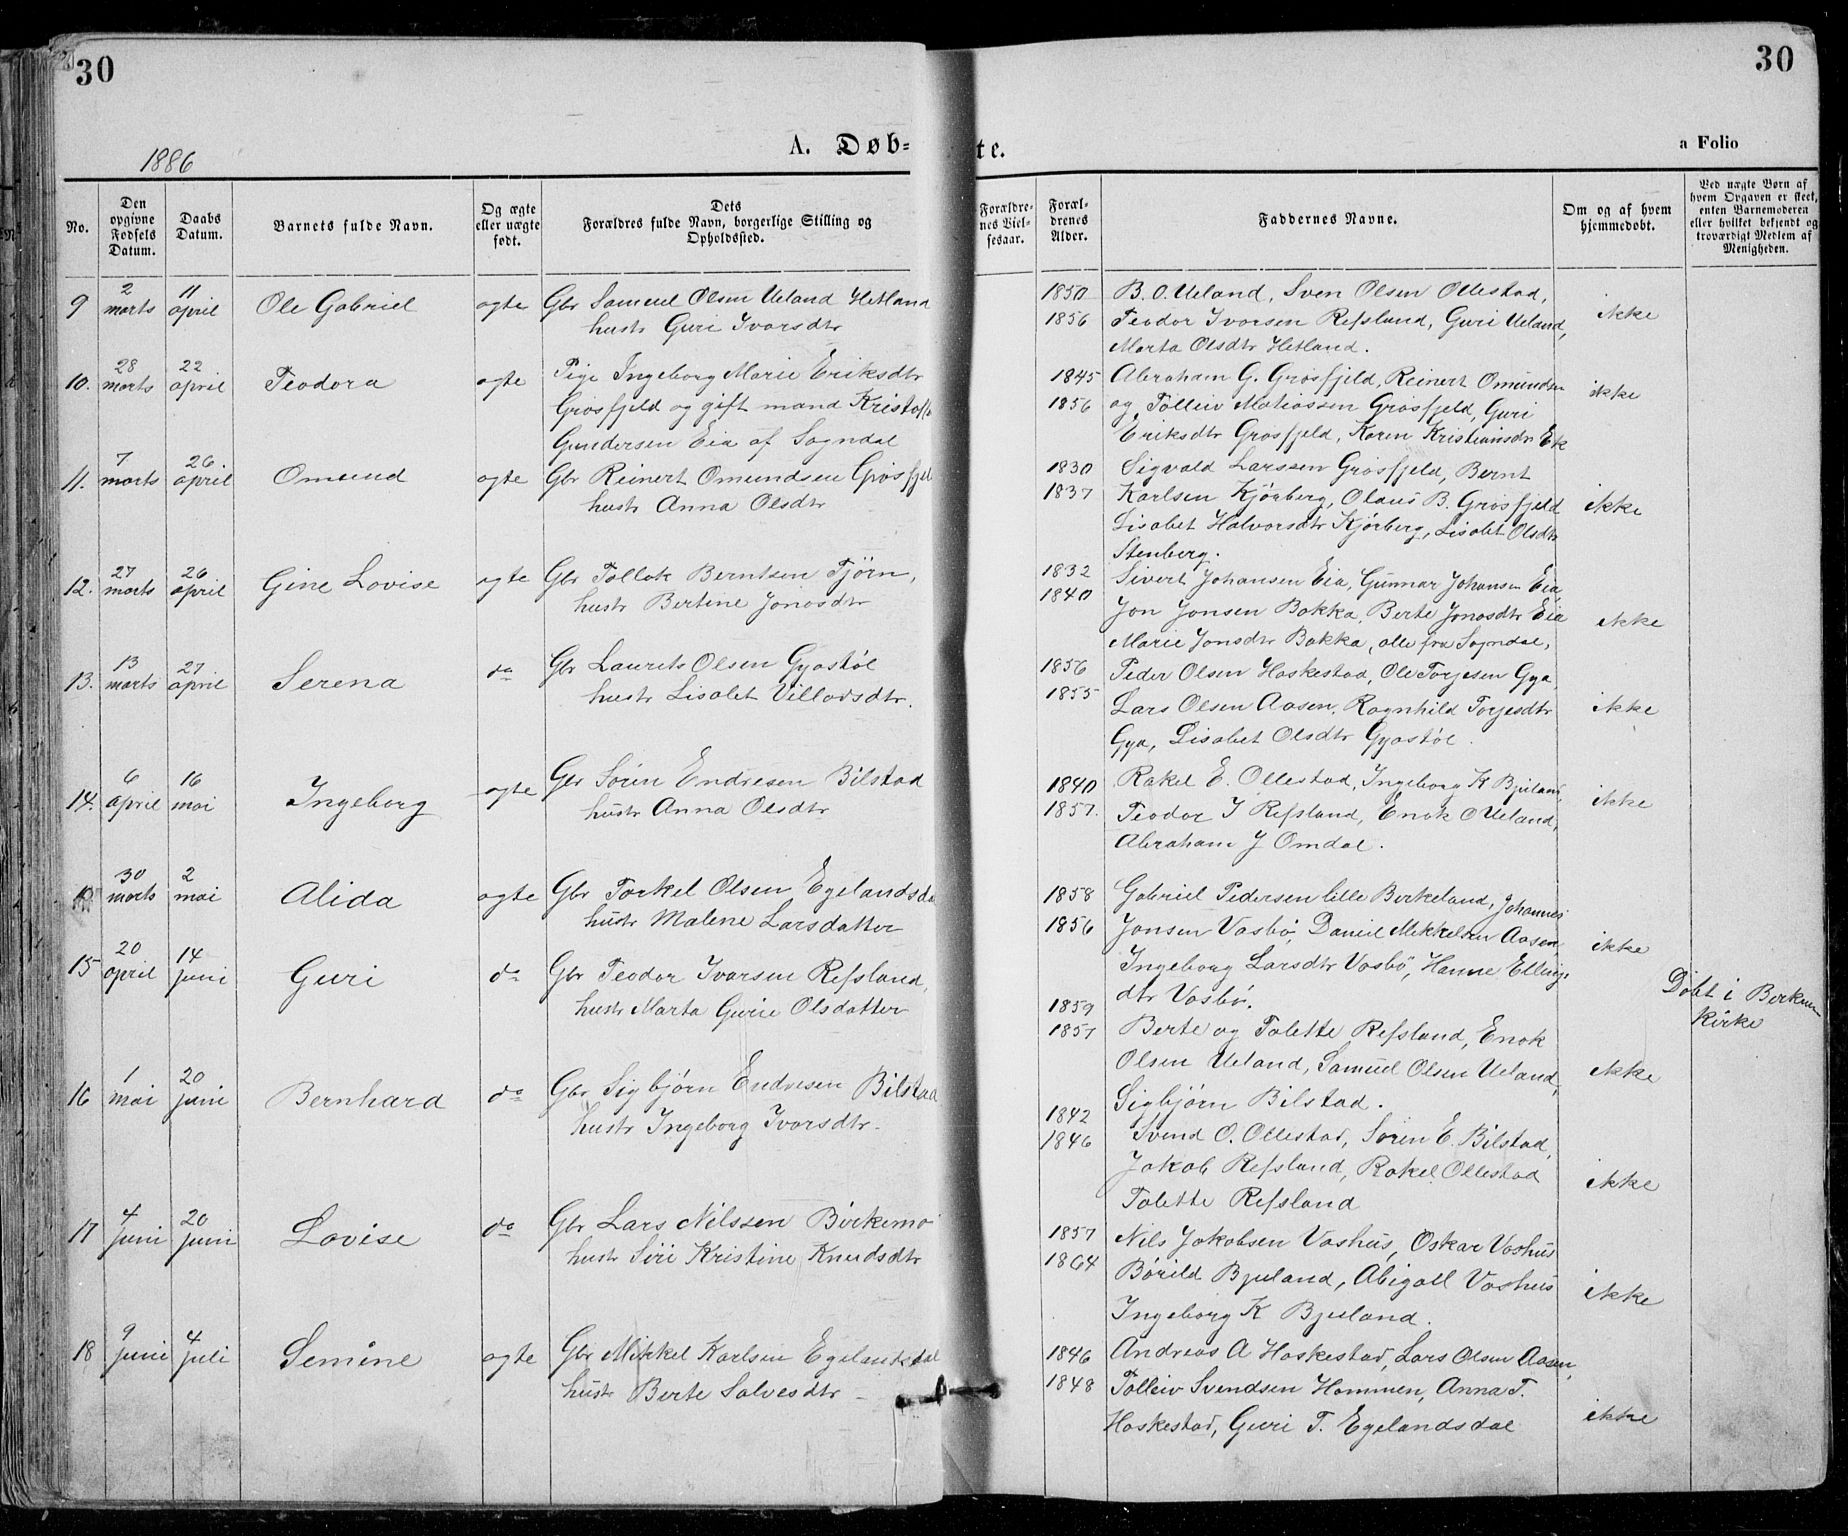 30
30
1886
A. Døb-
te.
a Folio
No.
Den opgivne Fødsels Datum.
Daabs Datum.
Barnets fulde Navn.
Og ægte eller uægte født.
Dets Forældres fulde Navn, borgerlige Stilling og Opholdssted.
Forældrenes Vielsesaar.
Forældrenes Alder.
Faddernes Navne.
Om og af hvem hjemmedøbt.
Ved uægte Børn af hvem Opgaven er skeet, enten Barnemoderen eller hvilket bekjendt og troværdigt Medlem af Menigheden.
9 2 marts 11 april Ole Gabriel ogte Gbr Samuel Olsen Ueland Hetland
hustr Guri Ivarsdtr
1850 B. O. Ueland, Sven Olsen Ollestad,
1856 Teodor Ivarsen Refsland, Guri Ueland, ikke
Marta Olsdtr Hetland.
10. 28 marts 22 april Teodora ogte Pige Ingeborg Marie Eriksdtr
Grøsfjeld og gift mand Kristoffe
Gundersen Eia af Sogndal
1845 Abraham G. Grøsfjeld, Reinert Omundsen
1856 og Tolleiv Matiassen Grøsfjeld, Guri ikke
Eriksdtr Grøsfjeld, Karen Kristiansdr Eik
11. 7 marts 26 april Omund ogte Gbr Reinert Omundsen Grøsfjeld
hustr Anna Olsdtr
1830 Sigvald Larssen Grøsfjeld, Bernt
1837 Karlsen Kjörberg, Olaus B. Grøsfjeld ikke
Lisabet Halvorsdtr Kjörberg, Lisabet Olsdtr
Stenberg.
12. 27 marts 26 april Gine Lovise ogte Gbr Tollak Berntsen Tjörn,
hustr Bertine Jonasdtr
1832 Sivert Johansen Eia, Gunnar Johansen Eia,
1840 Jon Jonsen Bakka, Berte Jonasdtr Eia ikke
Marie Jonsdtr Bakka, alle fra Sogndal,
13. 13 marts 27 april Serena do Gbr Laurits Olsen Gyastøl
hustr Lisabet Villadsdtr.
1856 Peder Olsen Haskestad, Ole Torjesen Gya,
1855 Lars Olsen Aasen, Ragnhild Torjesdtr ikke
Gya, Lisabet Olsdtr Gyastøl.
14. 6 april 16 mai Ingeborg ogte Gbr Sörin Endresen Bilstad
hustr Anna Olsdtr
1840 Rakel E. Ollestad, Ingeborg K Bjuland,
1857. Teodor I Refsland, Enok O Ueland, ikke
Abraham J Omdal.
30 marts 2 mai Alida ogte Gbr Torkel Olsen Egelandsda
hustr Malene Larsdatter
1858 Gabriel Pedersen lille Birkeland, Johannes
1856 Jonsen Vasbø, Daniel Mikkelsen Aasen ikke
Ingeborg Larsdtr Vasbö, Hanne Ellings
dtr Vasbö.
15 20 april 14 juni Guri do Gbr Teodor Ivarsen Refsland,
hustr Marta Gurie Olsdatter
1859
1857 Berte og Talette Refsland, Enok
Olsen Ueland, Samuel Olsen Ueland, ikke
Sigbjörn Bilstad.
Döbt i Birkrem
Kirke
16 1 mai 20 juni Bernhard do Gbr Sigbjørn Endresen Bilstad
hustr Ingeborg Ivarsdtr.
1842
1846 Svend O. Ollestad, Sörin E. Bilstad,
Jakob Refsland, Rakel Ollestad ikke
Talette Refsland
17 4 juni 20 juni Lovise do Gbr Lars Nilssen Birkemo
hustr Siri Kristine Knudsdtr
1857 Nils Jakobsen Vashus, Oskar Vashus
1864 Børild Bjuland, Abigael Vashus ikke
Ingeborg K Bjuland.
18 9 juni 4 juli Semine ogte Gbr Mikkel Karlsen Egelandsdal
hustr Berte Salvesdtr
1846 Andreas A Haskestad, Lars Olsen Aasen,
1848 Tolleiv Svendsen Hammen, Anna T.
Haskestad, Guri T. Egelandsdal ikke